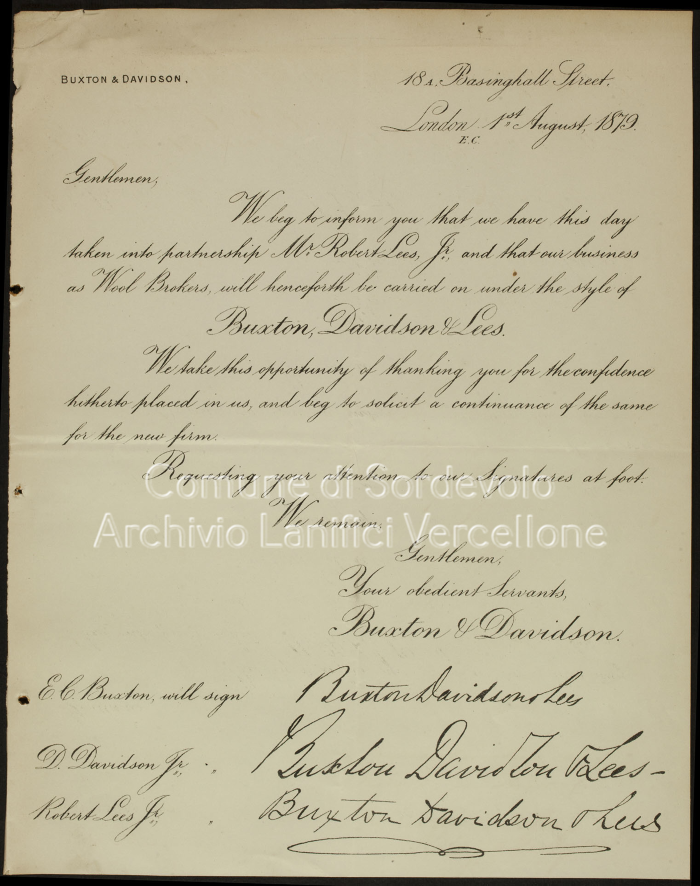 BUXTON & DAVIDSON.
18A. Basinghall Street.
London 1st August, 1879.
E.C.
Gentlemen,
We beg to inform you that we have this day
taken into partnership Mr. Robert Lees, Jr., and that our business
as Wool Brokers, will henceforth be carried on under the style of
Buxton, Davidson & Lees.
We take this opportunity of thanking you for the confidence
hitherto placed in us, and beg to solicit a continuance of the same
for the new firm.
Requesting your attention to our Signatures at foot.
Comune di Sordevolo
We remain,
Archivio Lanifici Vercellone
Gentlemen,
Your obedient Servants,
Buxton & Davidson.
E. C. Buxton, will sign Buxton Davidson & Lees
D. Davidson Jr. " " Buxton Davidson & Lees -
Robert Lees Jr. " Buxton Davidson & Lees